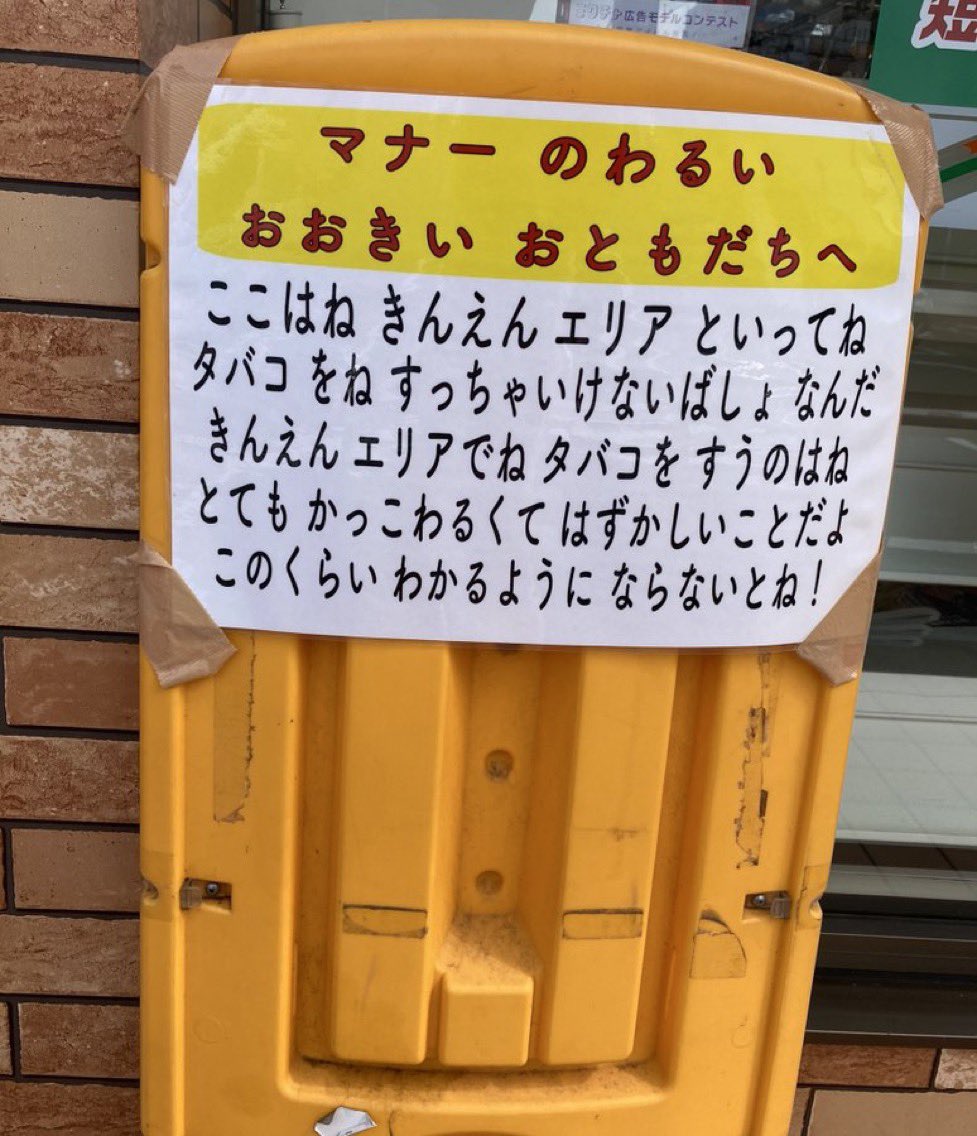 広告モデルコンテスト
短
マナー のわるい
おおきい おともだちへ
ここはね きんえん エリア といってね
タバコ をね すっちゃいけないばしょ なんだ
きんえん エリアでね タバコを すうのはね
とても かっこわるくて はずかしいことだよ
このくらい わかるように ならないとね！